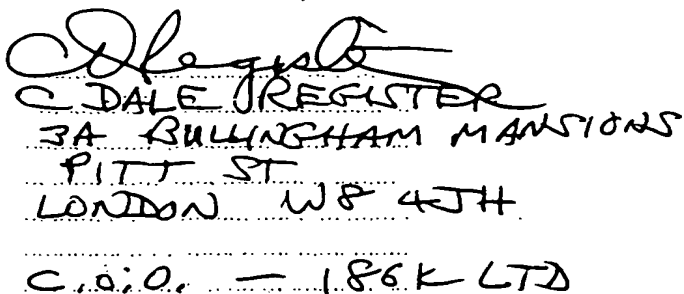 CDRegister
C DALE REGISTER
3A BULLINGHAM MANSIONS
PITT ST
LONDON W8 4JH
C.O.O. — 186K LTD